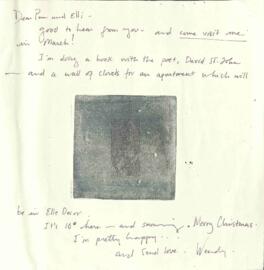 Dear Pam and Elli -
good to hear from you - and come visit me
in March!
I'm doing a book with the poet, David St. John
- and a wall of clouds for an apartment which will
be in Elle Decor
It's 10° here - and snowing. Merry Christmas.
I'm pretty happy...
and send love - Wendy.